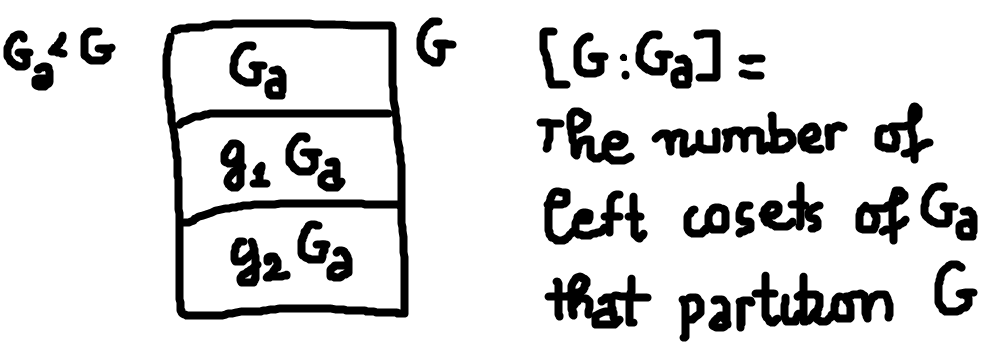 Gₐ < G
Gₐ
g₁ Gₐ
g₂ Gₐ
G
[G:Gₐ] =
The number of
left cosets of Gₐ
that partition G